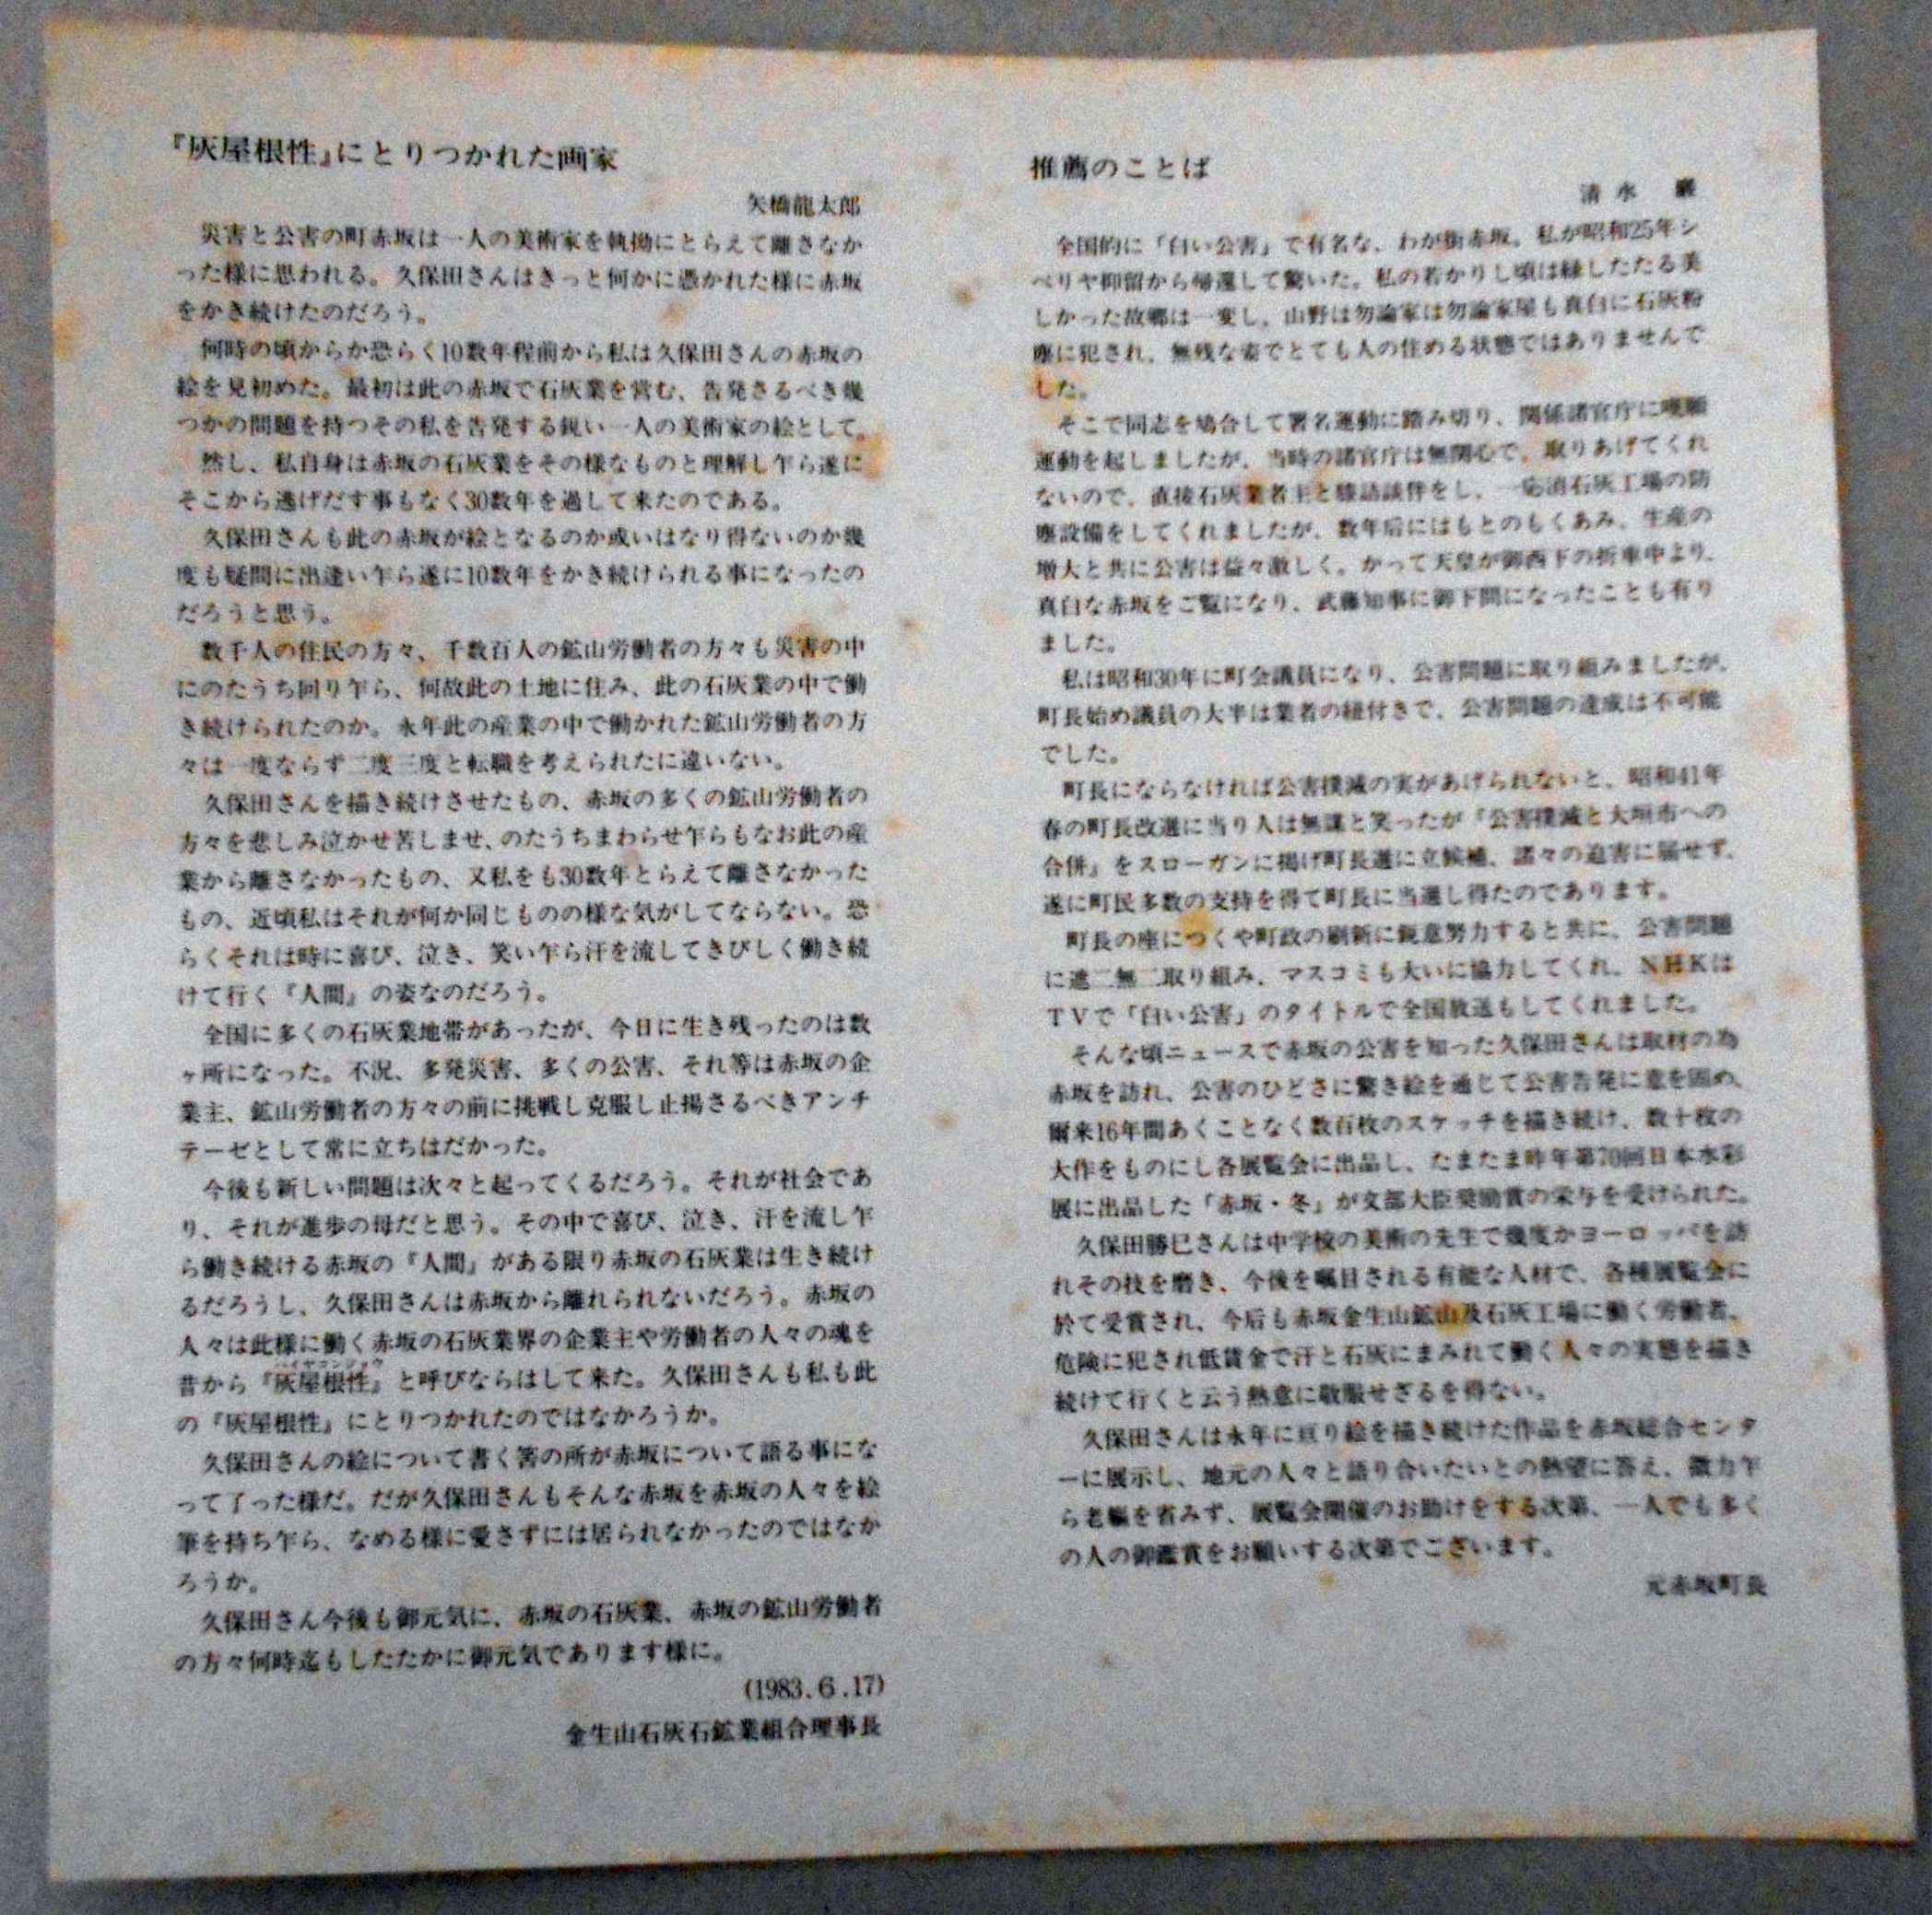 『灰屋根性』にとりつかれた画家
矢橋龍太郎
災害と公害の町赤坂は一人の美術家を執拗にとらえて離さなか
った様に思われる。久保田さんはきっと何かに憑かれた様に赤坂
をかき続けたのだろう。
何時の頃からか恐らく10数年程前から私は久保田さんの赤坂の
絵を見初めた。最初は此の赤坂で石灰業を営む、告発さるべき幾
つかの問題を持つその私を告発する鋭い一人の美術家の絵として。
然し、私自身は赤坂の石灰業をその様なものと理解し乍ら遂に
そこから逃げだす事もなく30数年を過して来たのである。
久保田さんも此の赤坂が絵となるのか或いはなり得ないのか幾
度も疑問に出逢い乍ら遂に10数年をかき続けられる事になったの
だろうと思う。
数千人の住民の方々、千数百人の鉱山労働者の方々も災害の中
にのたうち回り乍ら、何故此の土地に住み、此の石灰業の中で働
き続けられたのか。永年此の産業の中で働かれた鉱山労働者の方
々は一度ならず二度三度と転職を考えられたに違いない。
久保田さんを描き続けさせたもの、赤坂の多くの鉱山労働者の
方々を悲しみ泣かせ苦しませ、のたうちまわらせ乍らもなお此の産
業から離さなかったもの、又私をも30数年とらえて離さなかった
もの、近頃私はそれが何か同じものの様な気がしてならない。恐
らくそれは時に喜び、泣き、笑い乍ら汗を流してきびしく働き続
けて行く『人間』の姿なのだろう。
全国に多くの石灰業地帯があったが、今日に生き残ったのは数
ヶ所になった。不況、多発災害、多くの公害、それ等は赤坂の企
業主、鉱山労働者の方々の前に挑戦し克服し止揚さるべきアンチ
テーゼとして常に立ちはだかった。
今後も新しい問題は次々と起ってくるだろう。それが社会であ
り、それが進歩の母だと思う。その中で喜び、泣き、汗を流し乍
ら働き続ける赤坂の『人間』がある限り赤坂の石灰業は生き続け
るだろうし、久保田さんは赤坂から離れられないだろう。赤坂の
人々は此様に働く赤坂の石灰業界の企業主や労働者の人々の魂を
ハイヤコンジョウ
昔から『灰屋根性』と呼びならはして来た。久保田さんも私も此
の『灰屋根性』にとりつかれたのではなかろうか。
久保田さんの絵について書く筈の所が赤坂について語る事にな
って了った様だ。だが久保田さんもそんな赤坂を赤坂の人々を絵
筆を持ち乍ら、なめる様に愛さずには居られなかったのではなか
ろうか。
久保田さん今後も御元気に、赤坂の石灰業、赤坂の鉱山労働者
の方々何時迄もしたたかに御元気であります様に。
(1983.6.17)
金生山石灰石鉱業組合理事長
推薦のことば
清水 巌
全国的に「白い公害」で有名な、わが街赤坂。私が昭和25年シ
ベリヤ抑留から帰還して驚いた。私の若かりし頃は緑したたる美
しかった故郷は一変し、山野は勿論家は勿論家屋も真白に石灰粉
塵に犯され、無残な姿でとても人の住める状態ではありませんで
した。
そこで同志を鳩合して署名運動に踏み切り、関係諸官庁に嘆願
運動を起しましたが、当時の諸官庁は無関心で、取りあげてくれ
ないので、直接石灰業者主と膝詰談伴をし、一応消石灰工場の防
塵設備をしてくれましたが、数年后にはもとのもくあみ、生産の
増大と共に公害は益々激しく。かって天皇が御西下の折車中より、
真白な赤坂をご覧になり、武藤知事に御下問になったことも有り
ました。
私は昭和30年に町会議員になり、公害問題に取り組みましたが、
町長始め議員の大半は業者の紐付きで、公害問題の達成は不可能
でした。
町長にならなければ公害撲滅の実があげられないと、昭和41年
春の町長改選に当り人は無謀と笑ったが『公害撲滅と大垣市への
合併』をスローガンに掲げ町長選に立候補、諸々の迫害に屈せず、
遂に町民多数の支持を得て町長に当選し得たのであります。
町長の座につくや町政の刷新に鋭意努力すると共に、公害問題
に遮二無二取り組み、マスコミも大いに協力してくれ、NHKは
TVで「白い公害」のタイトルで全国放送もしてくれました。
そんな頃ニュースで赤坂の公害を知った久保田さんは取材の為
赤坂を訪れ、公害のひどさに驚き絵を通じて公害告発に意を固め、
爾来16年間あくことなく数百枚のスケッチを描き続け、数十枚の
大作をものにし各展覧会に出品し、たまたま昨年第70回日本水彩
展に出品した「赤坂・冬」が文部大臣奨励賞の栄与を受けられた。
久保田勝巳さんは中学校の美術の先生で幾度かヨーロッパを訪
れその技を磨き、今後を嘱目される有能な人材で、各種展覧会に
於て受賞され、今后も赤坂金生山鉱山及石灰工場に働く労働者、
危険に犯され低賃金で汗と石灰にまみれて働く人々の実態を描き
続けて行くと云う熱意に敬服せざるを得ない。
久保田さんは永年に亘り絵を描き続けた作品を赤坂総合センタ
ーに展示し、地元の人々と語り合いたいとの熱望に答え、微力乍
ら老軀を省みず、展覧会開催のお助けをする次第、一人でも多く
の人の御鑑賞をお願いする次第でございます。
元赤坂町長